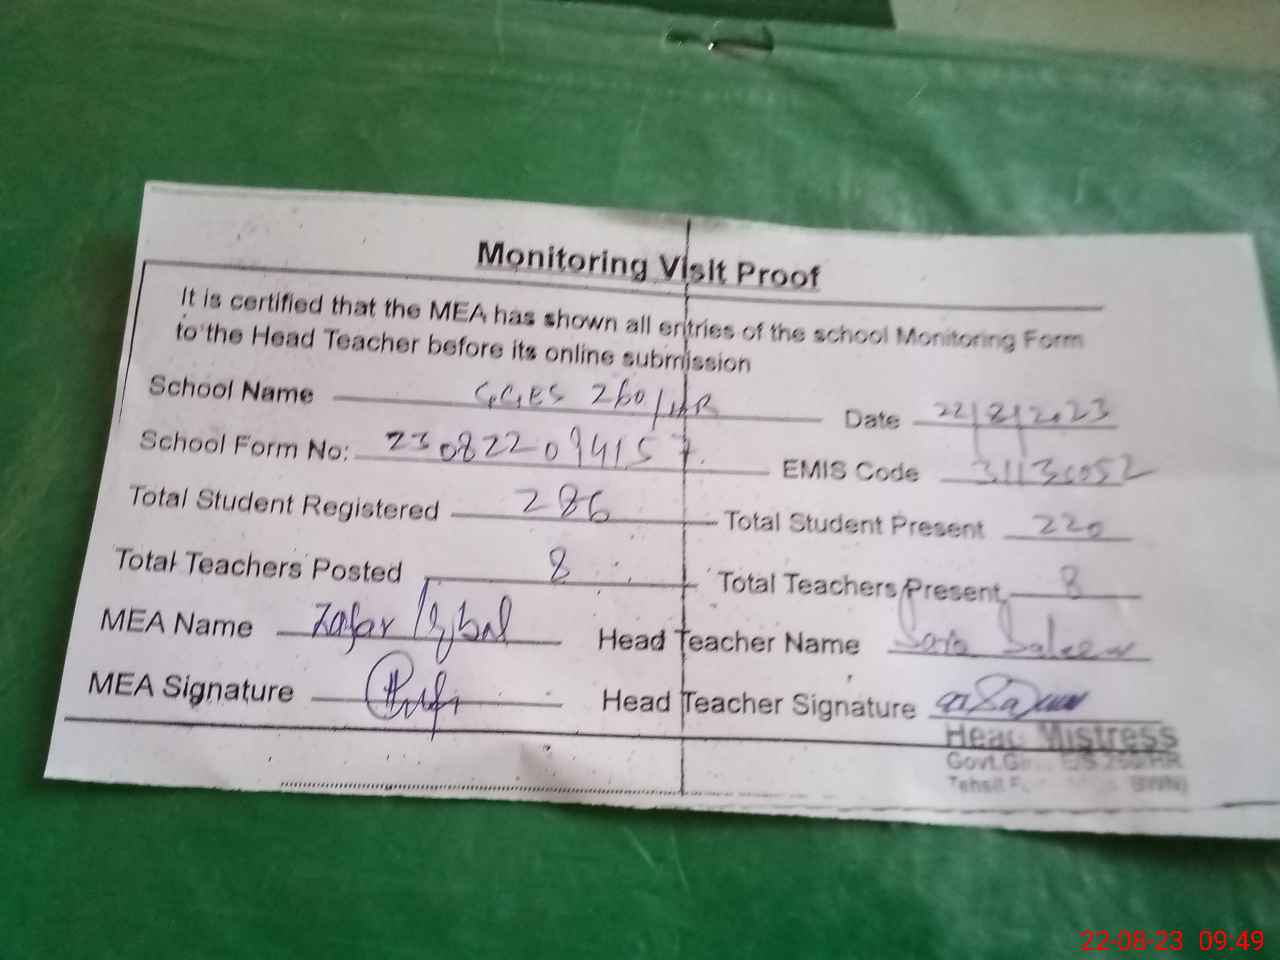 Monitoring Visit Proof
It is certified that the MEA has shown all entries of the school Monitoring Form
to the Head Teacher before its online submission
School Name GGES 260/HR Date 22/8/2023
School Form No: 230822094157. EMIS Code 31130052
Total Student Registered 286 Total Student Present 220
Total Teachers Posted 8 Total Teachers Present 8
MEA Name Zafar Iqbal Head Teacher Name Saleem
MEA Signature Head Teacher Signature
Head Mistress
Govt. 260/HR
Tehsil (BWN)
22-08-23 09:49